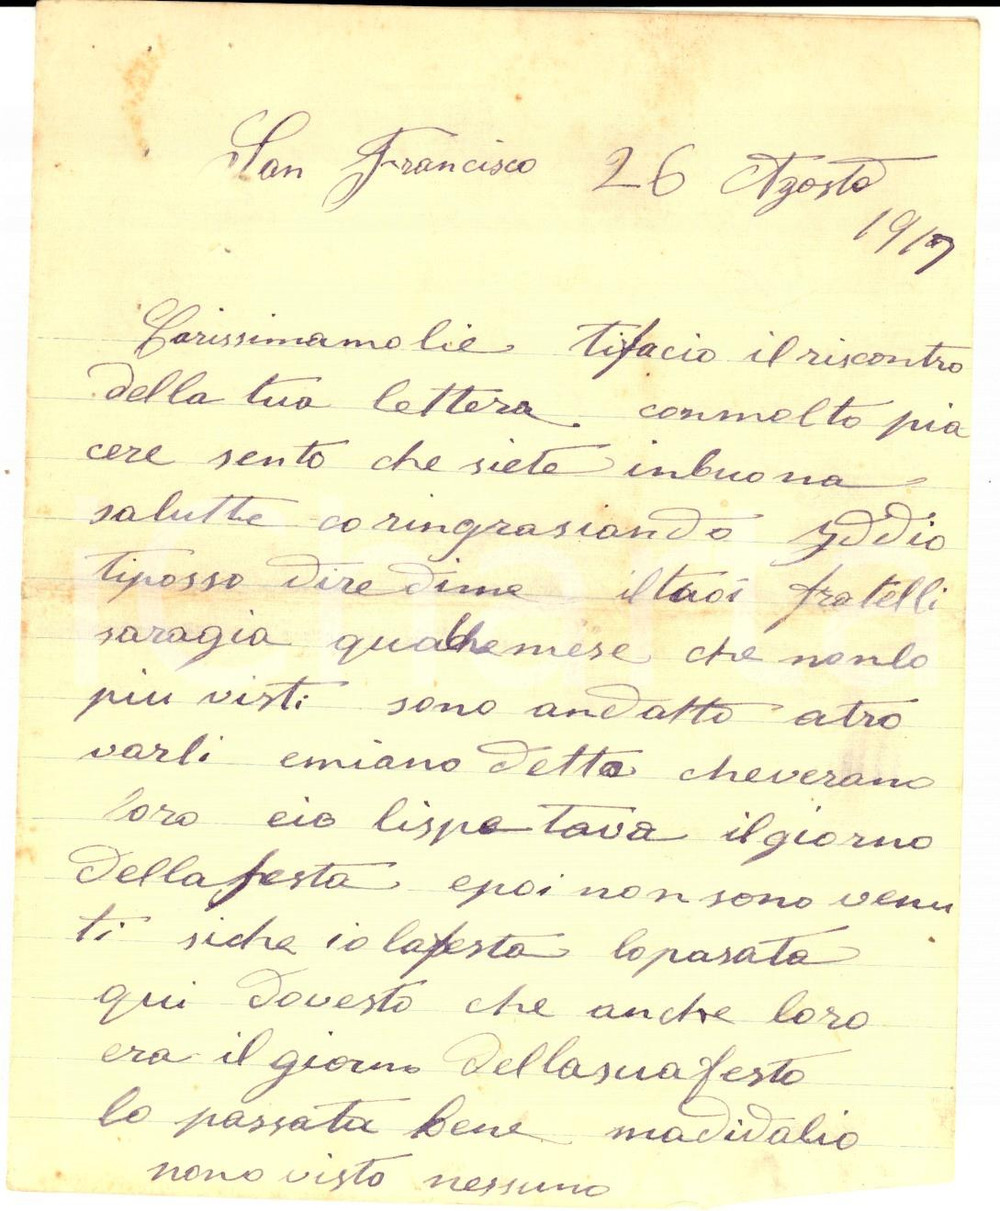 San Francisco 26 Agosto
1917
Carissimamolie tifacio il riscontro
della tua lettera conmolto pia
cere sento che siete inbuona
salutte coringrasiando Yddio
tiposso dire dime iltuoi fratelli
saragia qualhemese che nonlo
piu visti sono andatto atro
varli emiano detto cheverano
loro eio lispetava ilgiorno
dellafesta epoi non sono venu
ti siche io lafesta lopasata
qui dovesto che anche loro
era il giorno dellasuafesto
lo passata bene madidalio
nono visto nessuno